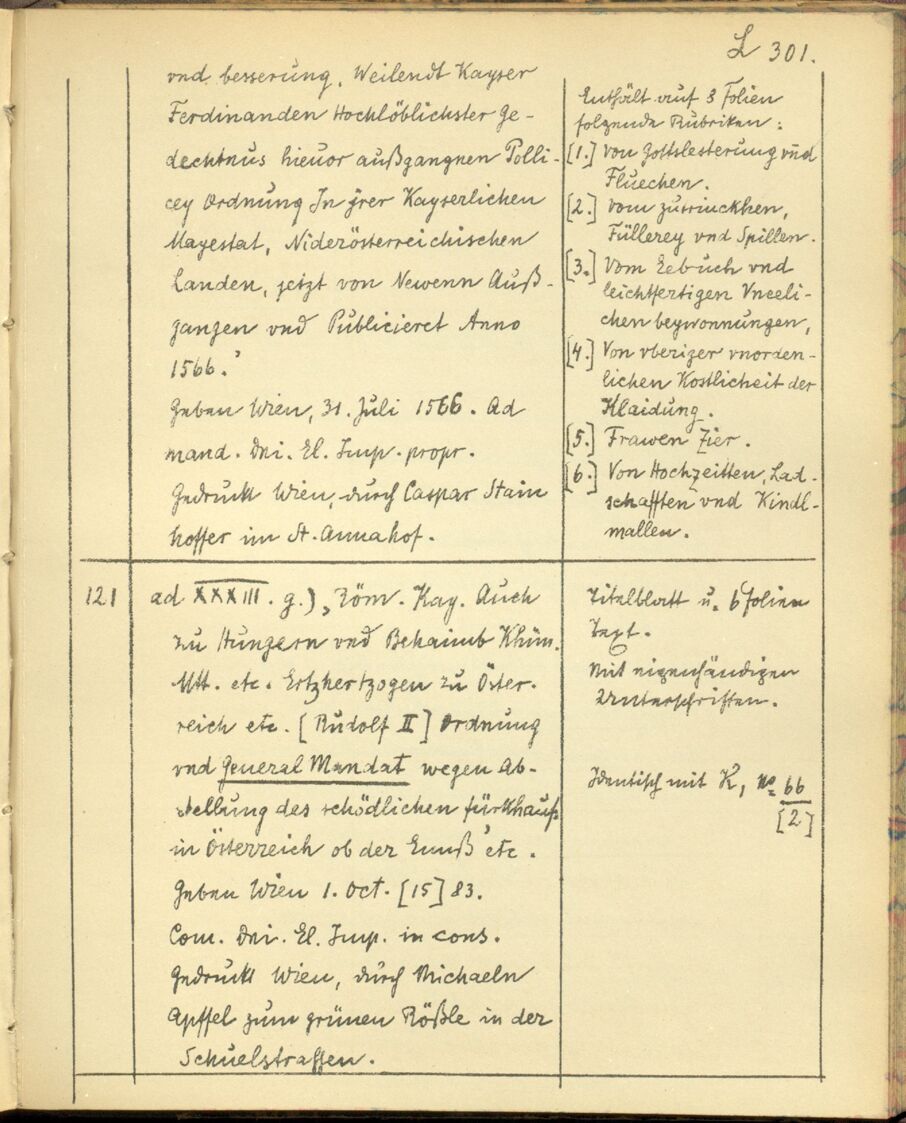 L 301.
vnd besserung, Weilendt Kayser
Ferdinanden Hochlöblichster Ge-
dechtnus hieuor außgangnen Polli-
cey Ordnung In jrer Kayserlichen
Mayestat, Niderösterreichischen
Landen, jetzt von Newenn Auß-
gangen vnd Publicieret Anno
1566.'
Geben Wien, 31. Juli 1566. Ad
mand. Dni. El. Imp. propr.
Gedruckt Wien, durch Caspar Stain
hoffer im St. Annahof.
Enthält auf 8 Folien
folgende Rubriken:
[1.] Von Gottslesterung vnd
Fluechen.
[2.] Vom zutrinckhen,
Füllerey vnd Spillen.
[3.] Vom Eebruch vnd
leichtfertigen Vneeli-
chen beywonnungen,
[4.] Von vberiger vnorden-
lichen Kostlicheit der
Klaidung.
[5.] Frawen Zier.
[6.] Von Hochzeitten, Lad-
schafften vnd Kindl-
mallen.
121
ad XXXIII. g.) ‚Röm. Kay. Auch
zu Hungern vnd Behaimb Khün.
Mtt. etc. Ertzhertzogen zu Öster-
reich etc. [Rudolf II] Ordnung
vnd General Mandat wegen Ab-
stellung des schödlichen fürkhauf
in Österreich ob der Ennß' etc.
Geben Wien 1. Oct. [15]83.
Com. Dni. El. Imp. in cons.
Gedruckt Wien, durch Michaeln
Apffel zum grünen Rößle in der
Schuelstrassen.
Titelblatt u. 6 folien
Text.
Mit eigenhändigen
Unterschriften.
Identisch mit K, No 66
[2]